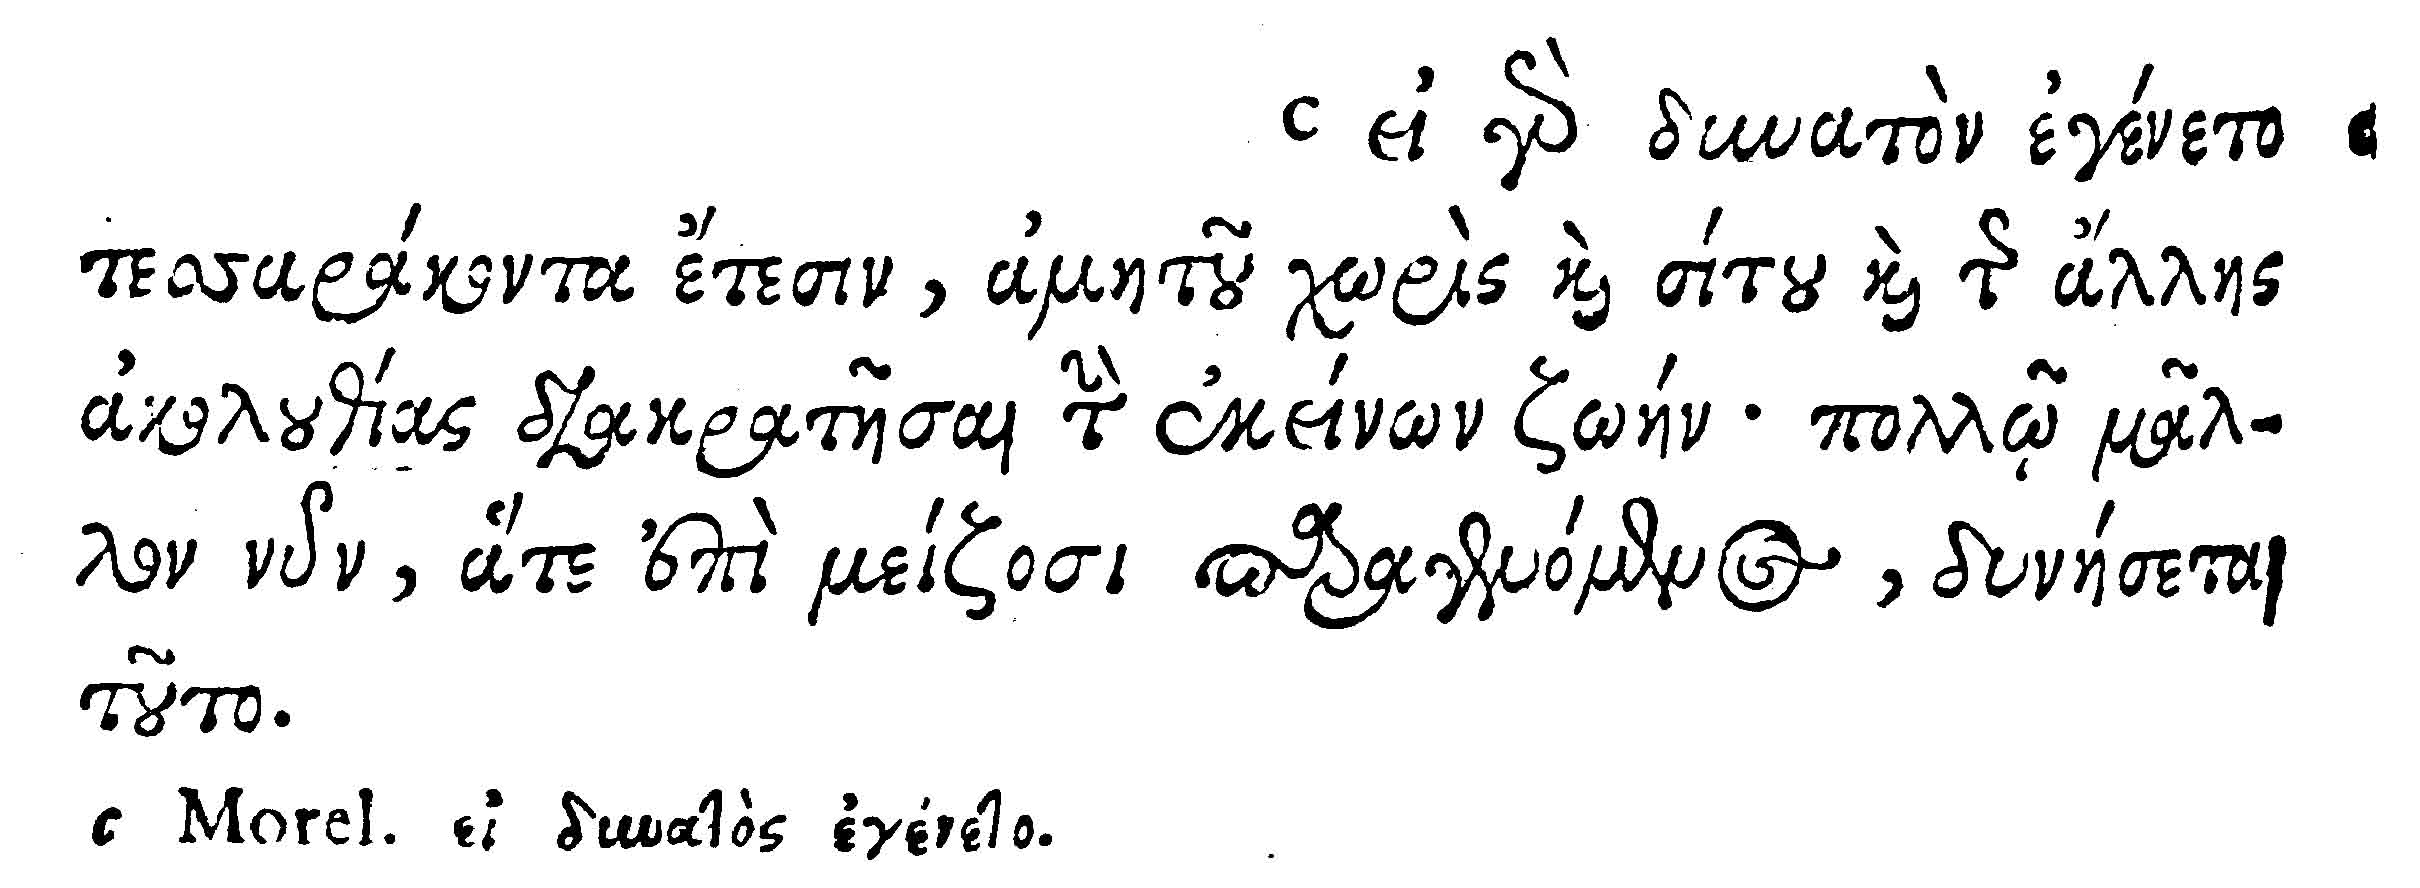 c εἰ γὰρ δυνατὸν ἐγένετο
τεσσαράκοντα ἔτεσιν, ἀμητοῦ χωρὶς καὶ σίτου καὶ τῆς ἄλλης
ἀκολουθίας διακρατῆσαι τὴν ἐκείνων ζωήν· πολλῷ μᾶλ-
λον νῦν, ἅτε ἐπὶ μείζοσι παραγενόμενος, δυνήσεται
τοῦτο.
c Morel. εἰ δυνατὸς ἐγένετο.